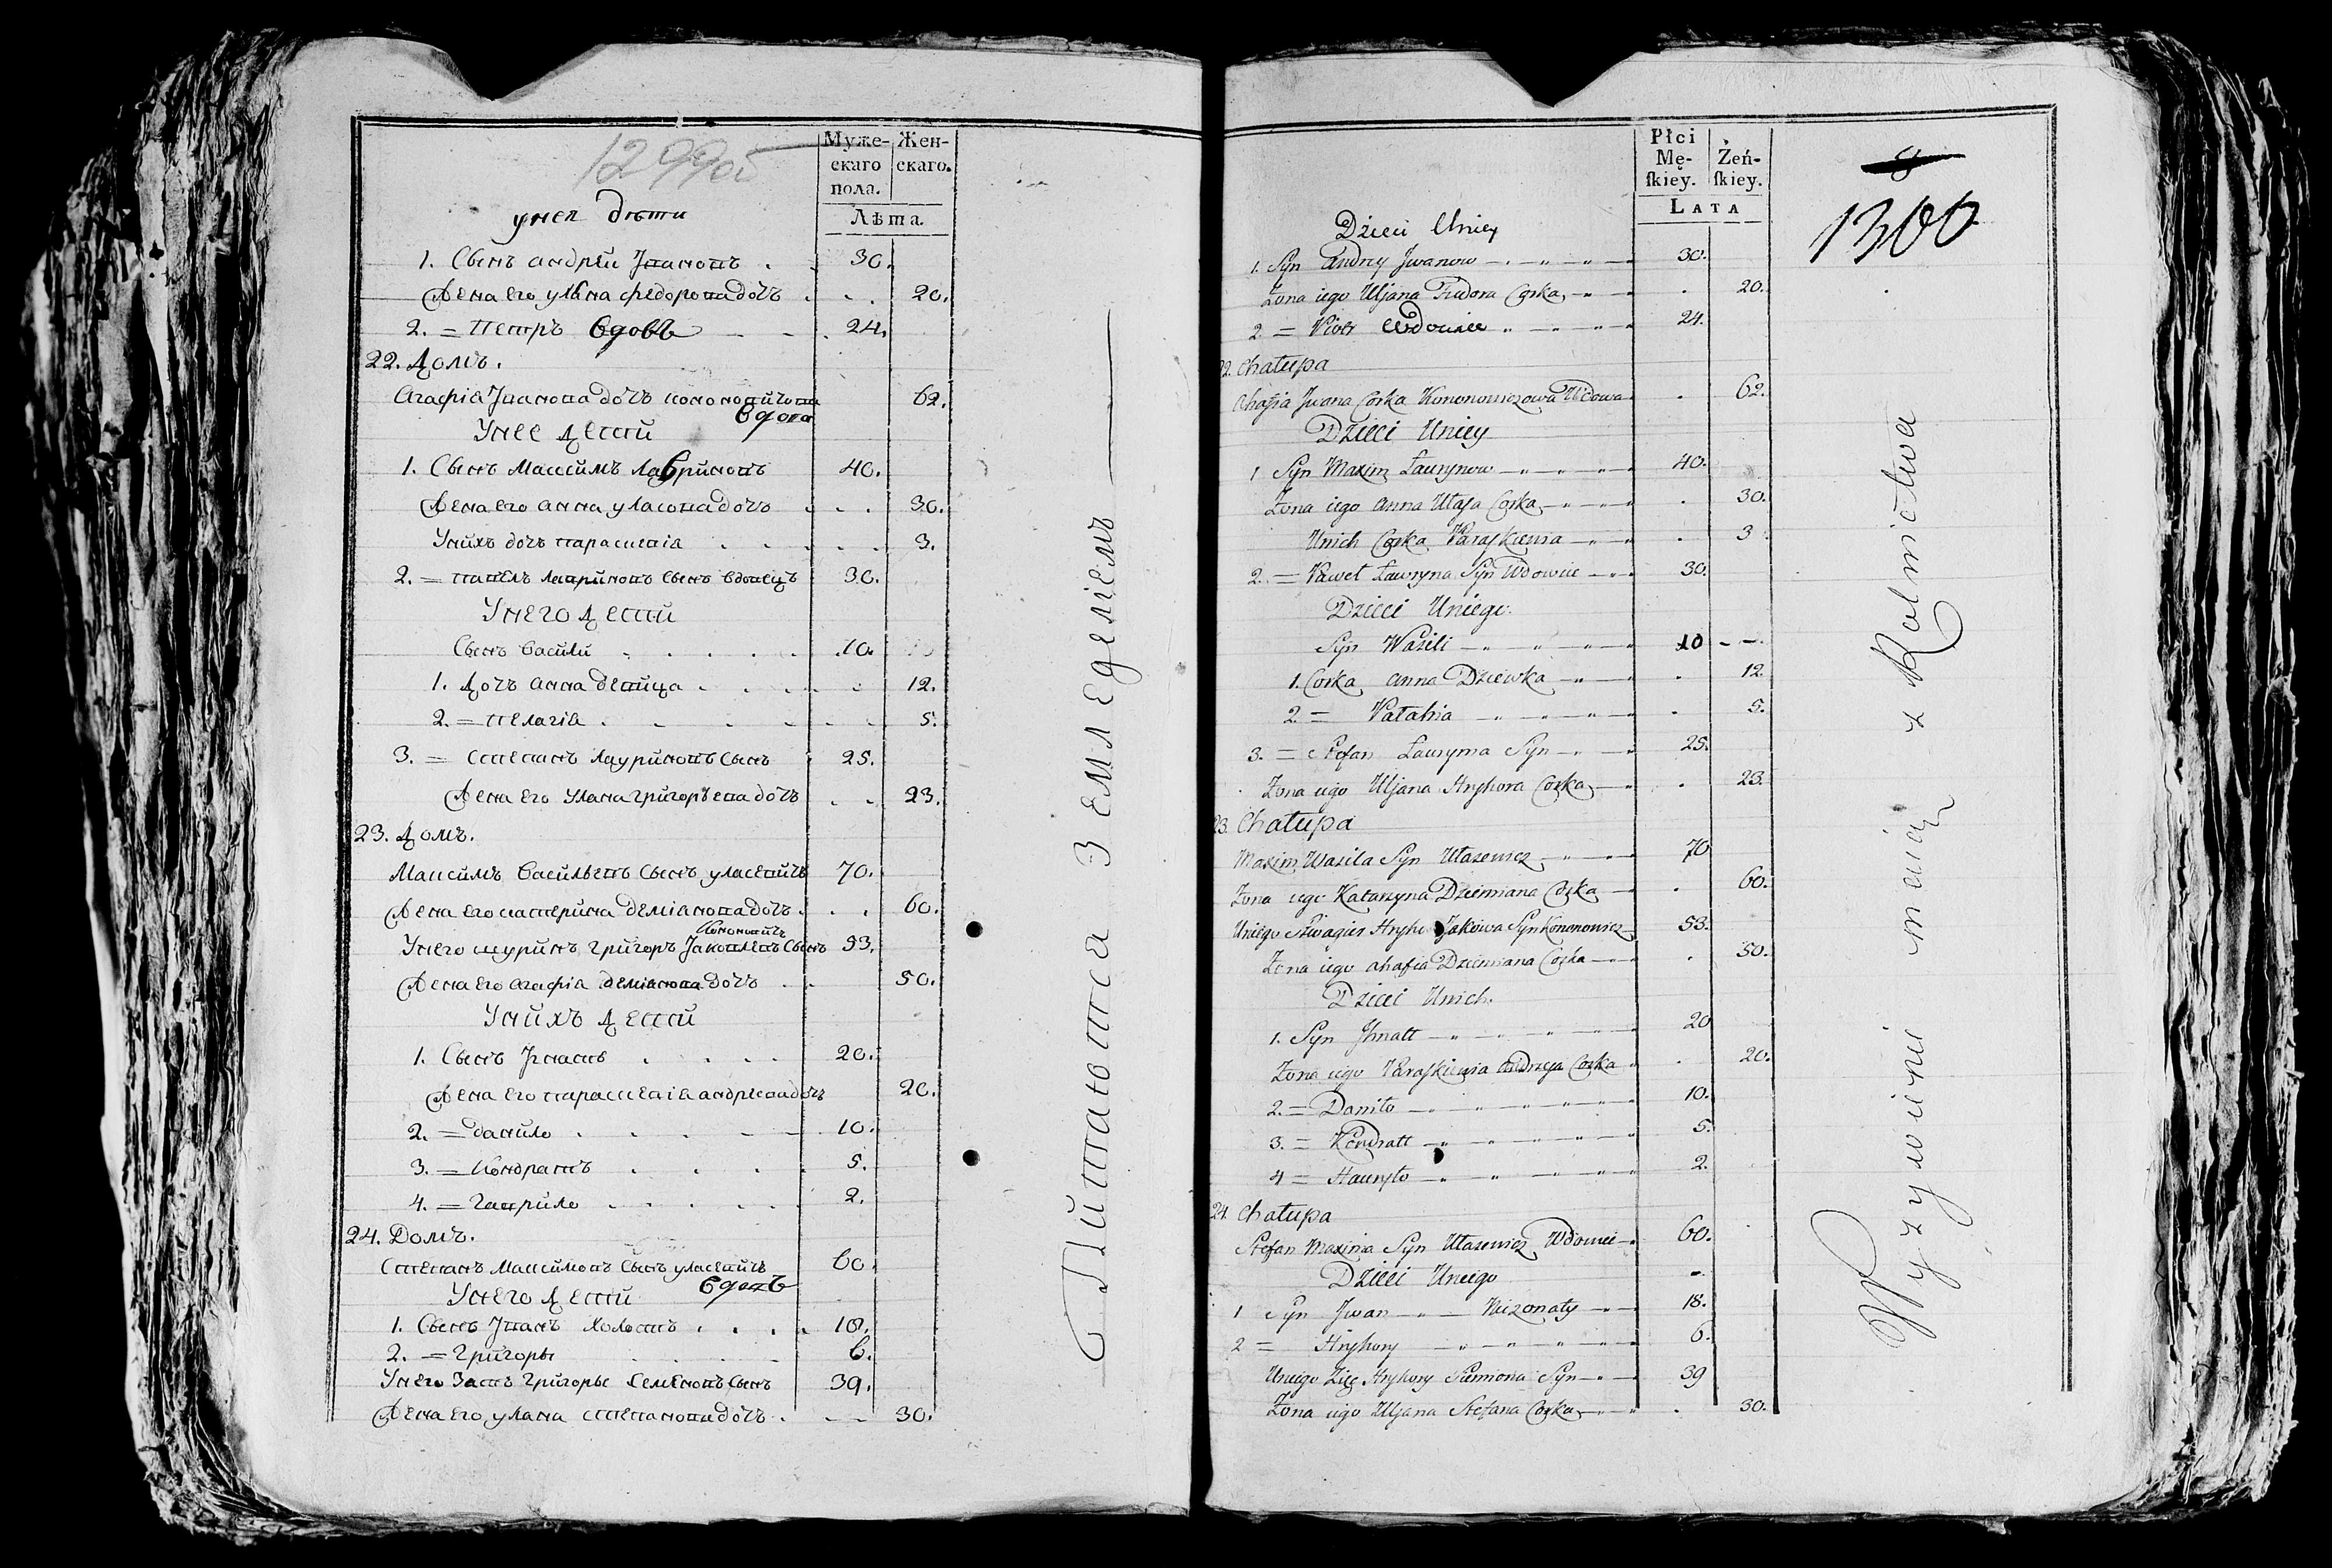 1299об
Муже-
скаго
пола.
Жен-
скаго.
Лѣта.
унея дѣти
1. Сынъ андрей Jвановъ 30.
Жена его уляна федорова дочъ 20.
2. = Петръ вдовъ 24.
22. Домъ.
Агафiя Jванова дочъ кононовичова 62.
вдова
Унее Дети
1. Сынъ Максимъ Лавриновъ 40.
Жена его анна уласова дочъ 30.
Унихъ дочъ параскевiя 3.
2. = павелъ лавриновъ сынъ вдовецъ 30.
Унего Дети
Сынъ Васили 10.
1. Дочъ анна девица 12.
2. = пелагiя 5.
3. = Степанъ лауриновъ сынъ 25.
Жена его Уляна григоръева дочъ 23.
23. Домъ.
Максимъ Васильевъ Сынъ уласевичъ 70.
Жена его катерина демiанова дочъ 60.
Кононовичъ
Унего шуринъ григоръ Jаковлевъ Сынъ 53.
Жена его агафiя демiанова дочъ 50.
Унихъ Дети
1. Сынъ Jгнатъ 20.
Жена его параскевiя андреева дочъ 20.
2. = данило 10.
3. = Кондратъ 5.
4. = гаврило 2.
24. Домъ.
Степанъ Максимовъ Сынъ уласевичъ 60.
вдовъ
Унего Дети
1. Сынъ Jванъ холостъ 18.
2. = григоры 6.
Унего Зять григоры Семеновъ Сынъ 39.
Жена его уляна степанова дочъ 30.
Питаются Земледелiемъ
Płci
Mę-
ſkiey.
Żeń-
ſkiey.
Lata
1300
Dzieci Uniey
1. Syn Andrey Jwanow 30.
Żona iego Uljana Fiedora Corka 20.
2 = Piotr Wdowiec 24.
22. Chałupa
Ahafia Jwana Corka Kononowiczowa Wdowa 62.
Dzieci Uniey
1 Syn Maxim Ławrynow 40.
Żona iego Anna Ułasa Corka 30.
Unich Corka Paraſkiewia 3
2. = Paweł Ławryna Syn Wdowiec 30.
Dzieci Uniego
Syn Wasili 10
1. Corka Anna Dziewka 12.
2. = Palahia 5.
3. = Stefan Ławryna Syn 25.
Żona iego Uljana Hryhora Corka 23.
23. Chałupa
Maxim Wasila Syn Ułasewicz 70
Żona iego Katarzyna Dziemiana Corka 60.
Uniego Szwagier Hryho Jakowa Syn Kononowicz 53.
Żona iego Ahafia Dziemiana Corka 50.
Dzieci Unich.
1. Syn Jhnatt 20
Żona iego Paraſkiewia Andrzeja Corka 20.
2. = Daniło 10.
3. = Kondratt 5.
4 = Hauryło 2.
24. Chałupa
Stefan Maxima Syn Ułasewicz Wdowiec 60.
Dzieci Uniego
1 Syn Jwan Niezonaty 18.
2 = Hryhory 6.
Uniego Zięc Hryhory Siemiona Syn 39
Żona iego Uljana Stefana Corka 30.
Wyzywienie maią z Rolnictwa